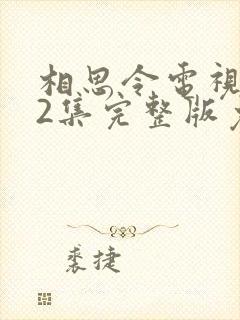 相思令电视
2集完整版
裘捷